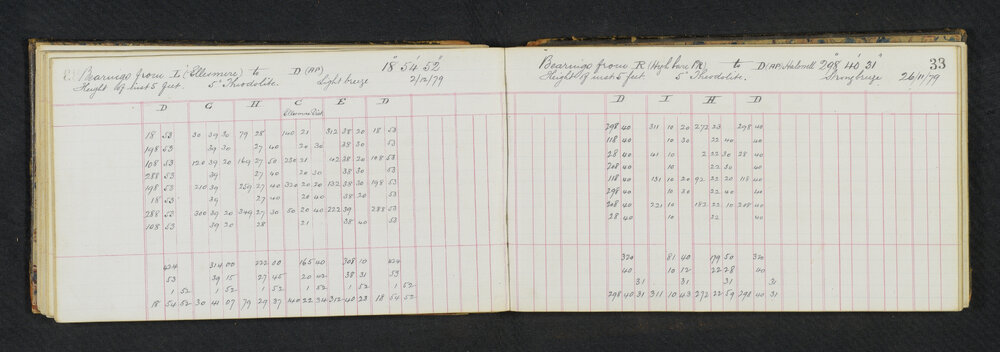 Bearings from L (Ellesmere) to D (AP) 18° 54' 52"
Height of inst 5 feet. 5" Theodolite. Light breeze 2/12/79
D G H C E D
Ellesmere Dist
18 53 30 39 30 79 28 140 21 312 38 20 18 53
198 53 39 30 27 40 20 30 38 30 53
108 53 120 39 20 169 27 50 230 21 42 38 20 108 53
288 53 39 27 40 20 30 38 30 53
198 53 210 39 259 27 40 320 20 20 132 38 30 198 53
18 53 39 27 40 20 40 38 20 53
288 53 300 39 20 349 27 30 50 20 40 222 39 288 53
108 53 39 20 28 21 38 40 53
424 314 00 222 00 165 40 308 10 424
53 39 15 27 45 20 42 38 31 53
1 52 1 52 1 52 1 52 1 52 1 52
18 54 52 30 41 07 79 29 37 140 22 34 312 40 23 18 54 52
33
Bearings from R to D 298° 40' 31"
Height of inst 5 feet 5" Theodolite. Strong breeze 26/11/79
D I H D
298 40 311 10 20 272 23 298 40
118 40 10 30 22 40 40
28 40 41 10 2 22 30 28 40
208 40 10 22 30 40
118 40 131 10 20 92 22 20 118 40
298 40 10 20 22 40 40
208 40 221 10 182 22 10 208 40
28 40 10 22 40
320 81 40 179 50 320
40 10 12 22 28 40
31 31 31 31
298 40 31 311 10 43 272 22 59 298 40 31